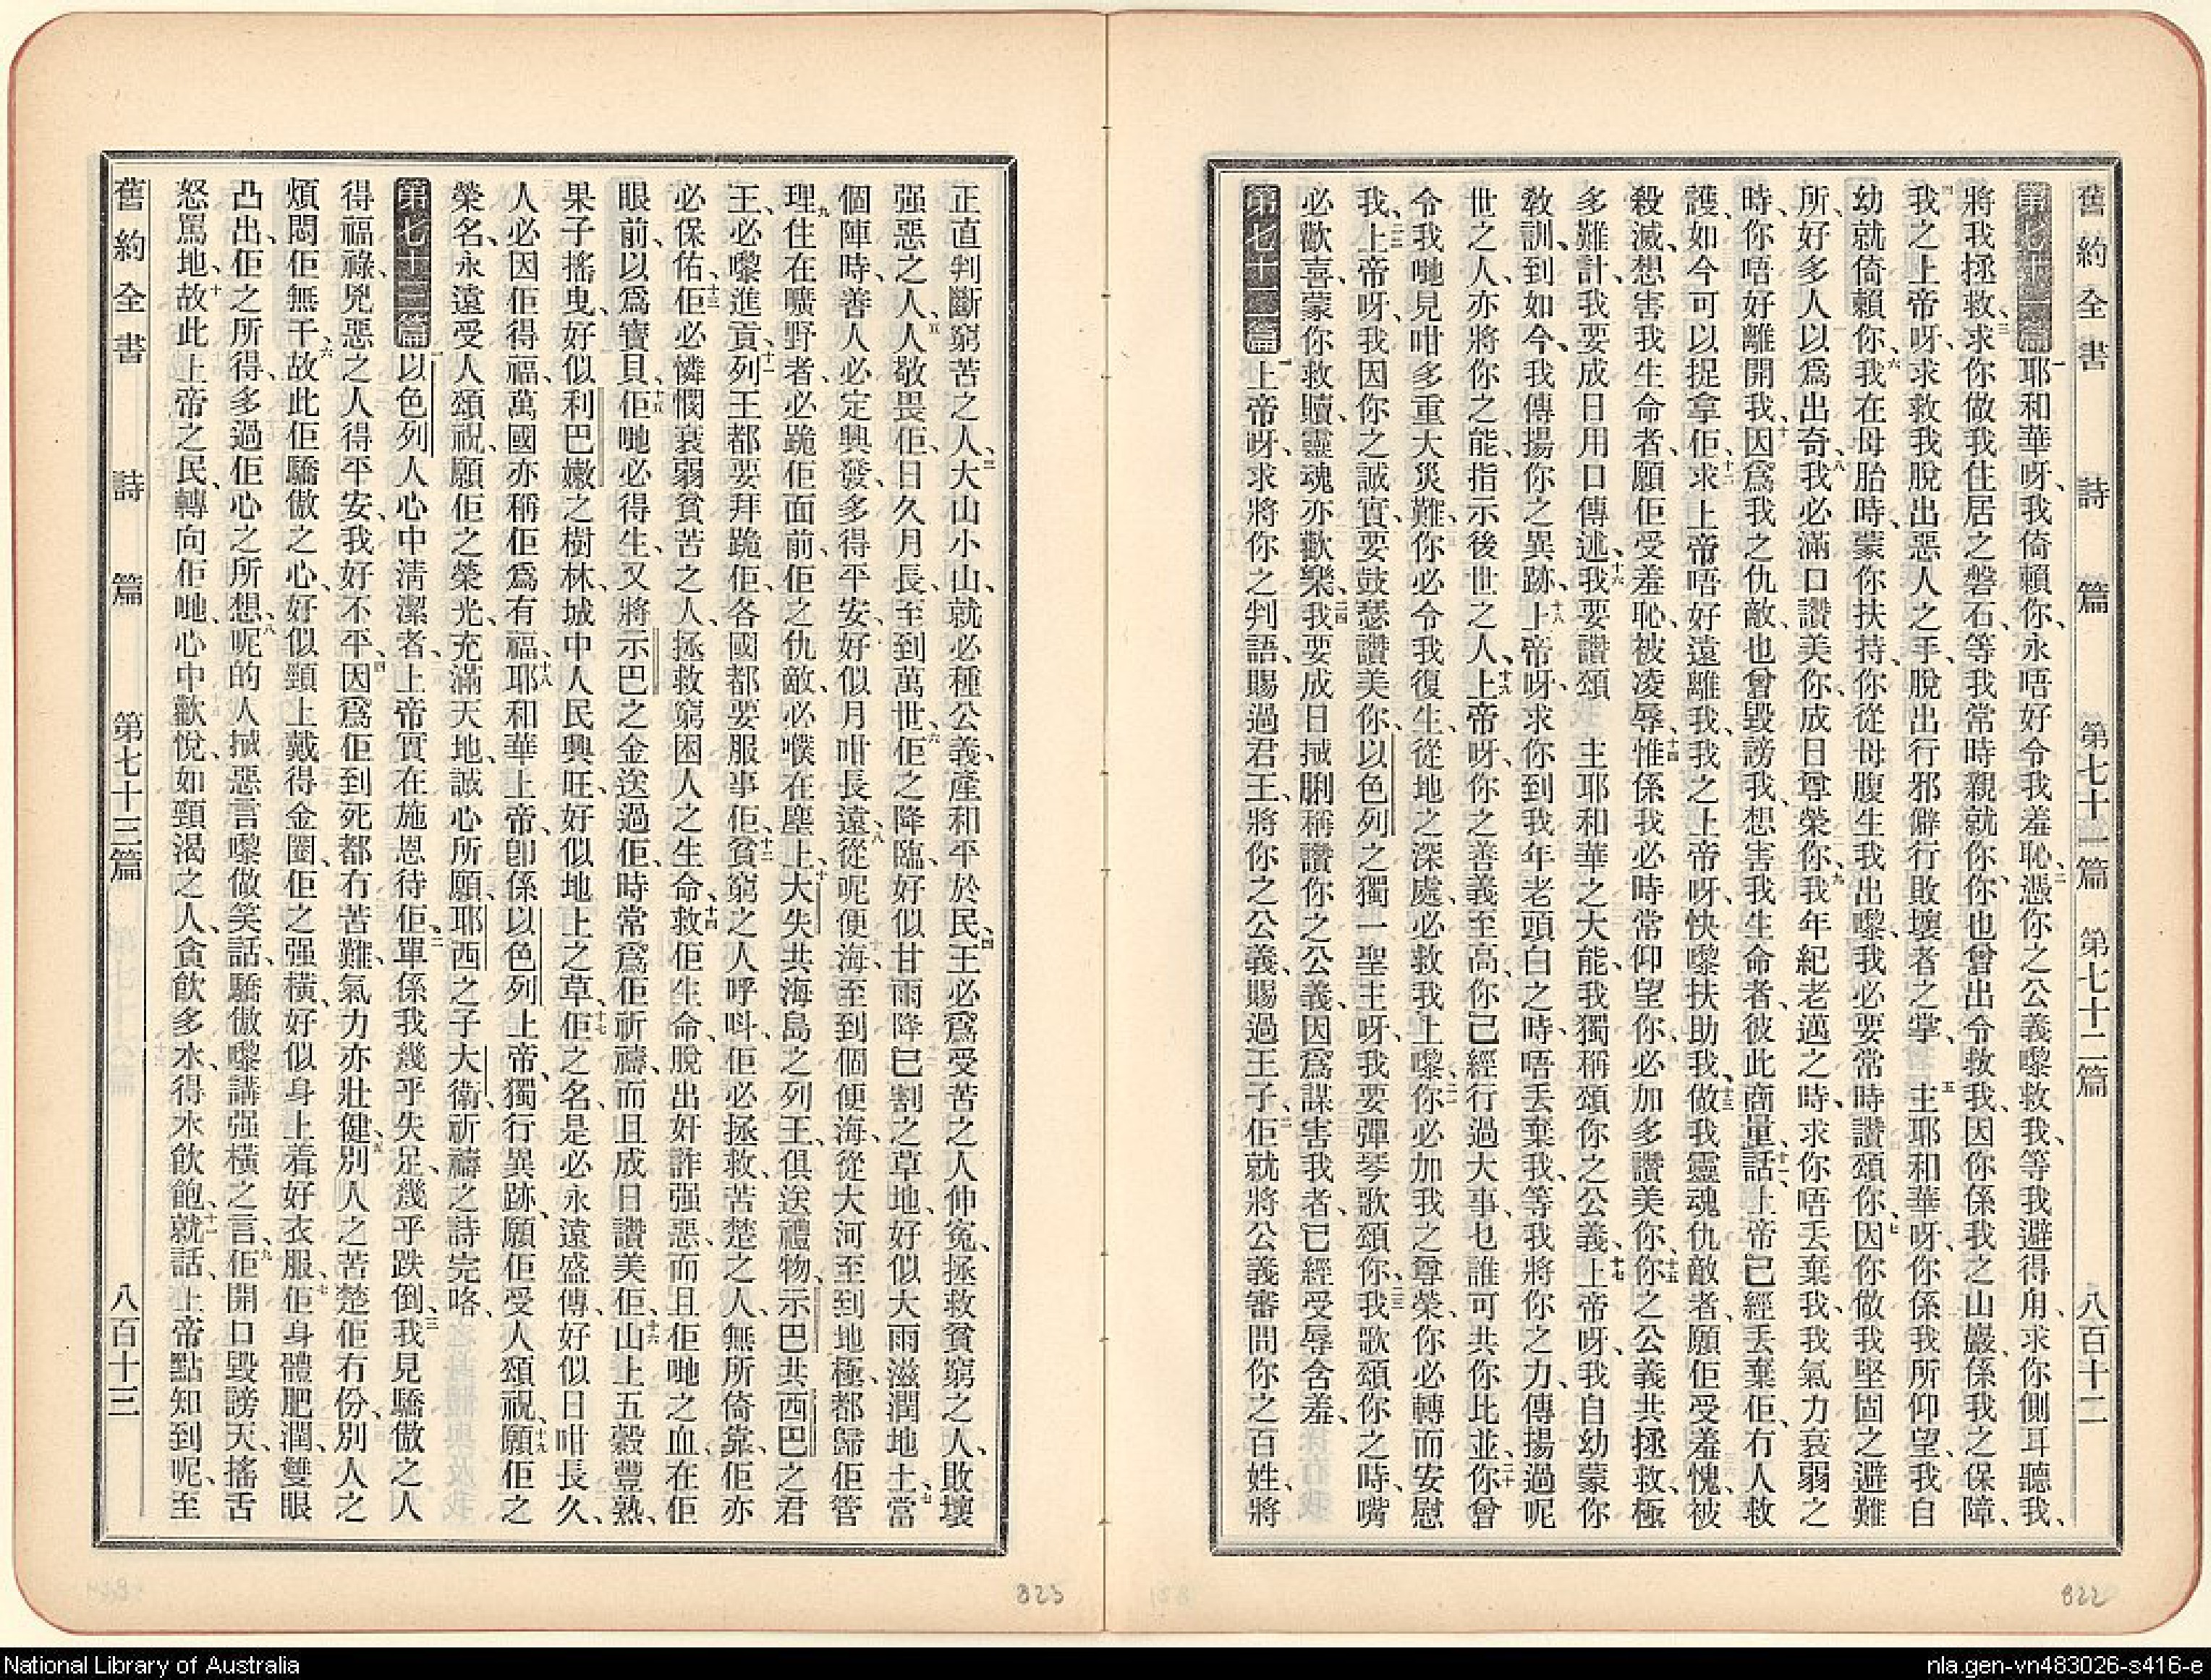 舊約全書 詩篇 第七十一篇 第七十二篇 八百十二
第七十一篇 一耶和華呀、我倚賴你、永唔好令我羞恥、二憑你之公義嚟救我、等我避得甪、求你側耳聽我、
將我拯救、三求你做我住居之磐石、等我常時親就你、你也曾出令救我、因你係我之山巖、係我之保障、
四我之上帝呀、求救我脫出惡人之手、脫出行邪僻行敗壞者之掌、五主耶和華呀、你係我所仰望、我自
幼就倚賴你、六我在母胎時、蒙你扶持、你從母腹生我出嚟、我必要常時讚頌你、七因你做我堅固之避難
所、好多人以爲出奇、八我必滿口讚美你、成日尊榮你、九我年紀老邁之時、求你唔丟棄我、我氣力衰弱之
時、你唔好離開我、十因爲我之仇敵、也曾毀謗我、想害我生命者、彼此商量、十一話、上帝已經丟棄佢、冇人救
護、如今可以捉拿佢、十二求上帝唔好遠離我、我之上帝呀、快嚟扶助我、十三做我靈魂仇敵者、願佢受羞愧、被
殺滅、想害我生命者、願佢受羞恥、被凌辱、十四惟係我必時常仰望你、必加多讚美你、十五你之公義共拯救、極
多難計、我要成日用口傳述、十六我要讚頌 主耶和華之大能、我獨稱頌你之公義、十七上帝呀、我自幼蒙你
敎訓、到如今、我傳揚你之異跡、十八上帝呀、求你到我年老頭白之時、唔丟棄我、等我將你之力、傳揚過呢
世之人、亦將你之能、指示後世之人、十九上帝呀、你之善義至高、你已經行過大事、乜誰可共你比並、二十你曾
令我哋見咁多重大災難、你必令我復生、從地之深處、必救我上嚟、二一你必加我之尊榮、你必轉而安慰
我、二二上帝呀、我因你之誠實、要鼓瑟讚美你、以色列之獨一聖主呀、我要彈琴歌頌你、二三我歌頌你之時、嘴
必歡喜、蒙你救贖、靈魂亦歡樂、二四我要成日擝脷稱讚你之公義、因爲謀害我者、已經受辱含羞、
第七十二篇 一上帝呀、求將你之判語、賜過君王、將你之公義、賜過王子、二佢就將公義審問你之百姓、將
正直判斷窮苦之人、三大山小山、就必種公義、產和平於民、四王必爲受苦之人伸冤、拯救貧窮之人、敗壞
强惡之人、五人敬畏佢、日久月長、至到萬世、六佢之降臨、好似甘雨降已割之草地、好似大雨滋潤地土、七當
個陣時、善人必定興發、多得平安、好似月咁長遠、八從呢便海、至到個便海、從大河至到地極、都歸佢管
理、九住在曠野者、必跪佢面前、佢之仇敵、必㗖在塵上、十大失共海島之列王、俱送禮物、示巴共西巴之君
王、必嚟進貢、十一列王都要拜跪佢、各國都要服事佢、十二貧窮之人呼呌、佢必拯救、苦楚之人、無所倚靠、佢亦
必保佑、十三佢必憐憫衰弱貧苦之人、拯救窮困人之生命、十四救佢生命、脫出奸詐强惡、而且佢哋之血、在佢
眼前、以爲寶貝、十五佢哋必得生、又將示巴之金送過佢、時常爲佢祈禱、而且成日讚美佢、十六山上五穀豐熟、
果子搖曳、好似利巴嫩之樹林、城中人民興旺、好似地上之草、十七佢之名、是必永遠盛傳、好似日咁長久、
人必因佢得福、萬國亦稱佢爲有福、十八耶和華上帝、卽係以色列上帝、獨行異跡、願佢受人頌祝、十九願佢之
榮名、永遠受人頌祝、願佢之榮光、充滿天地、誠心所願、耶西之子大衛、祈禱之詩完咯、
第七十三篇 一以色列人心中淸潔者、上帝實在施恩待佢、二單係我幾乎失足、幾乎跌倒、三我見驕傲之人
得福祿、兇惡之人得平安、我好不平、四因爲佢到死都冇苦難、氣力亦壯健、五別人之苦楚佢冇份、別人之
煩悶佢無干、六故此佢驕傲之心、好似頸上戴得金圈、佢之强橫、好似身上着好衣服、七佢身體肥潤、雙眼
凸出、佢之所得、多過佢心之所想、八呢的人擝惡言嚟做笑話、驕傲嚟講强橫之言、九佢開口毀謗天、搖舌
怒罵地、十故此上帝之民、轉向佢哋、心中歡悅、如頸渴之人、貪飮多水、得水飮飽、十一就話、上帝點知到呢、至
舊約全書 詩篇 第七十三篇 八百十三
823
822
National Library of Australia
nla.gen-vn483026-s416-e